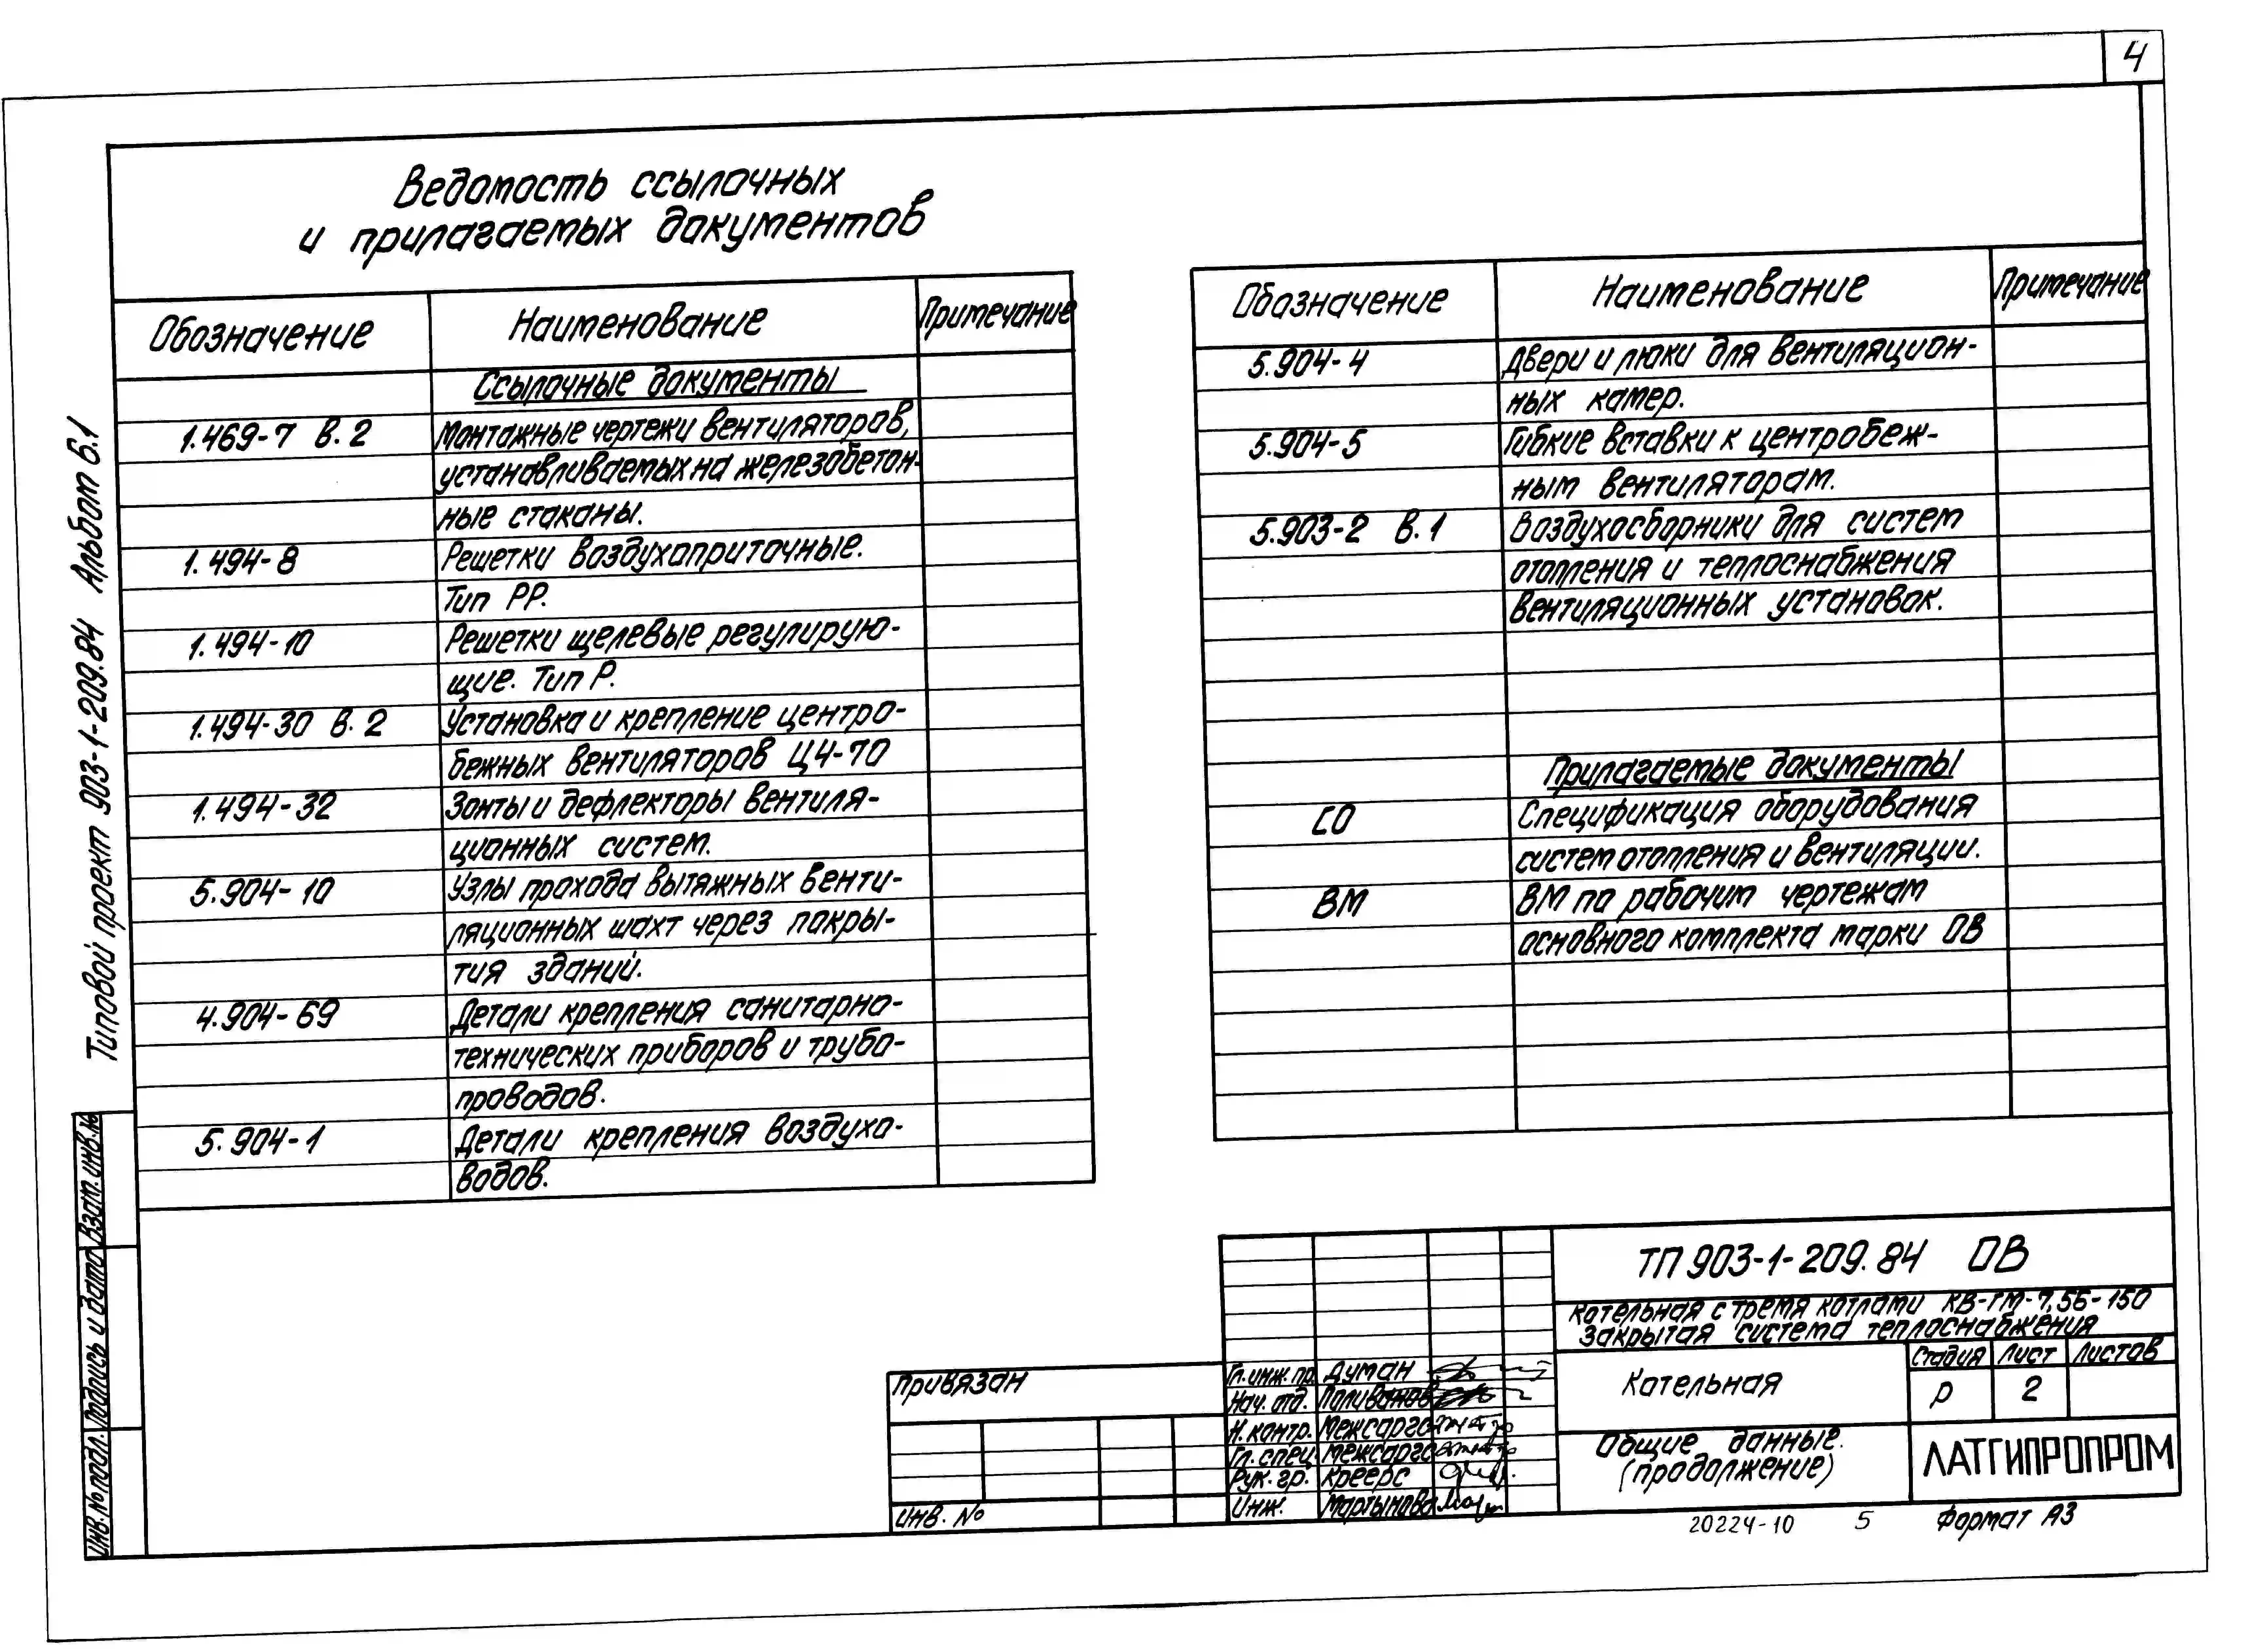 4
Ведомость ссылочных
и прилагаемых документов
Обозначение Наименование Примечание
Ссылочные документы
1.469-7 В.2 Монтажные чертежи вентиляторов,
устанавливаемых на железобетон-
ные стаканы.
1.494-8 Решетки воздухоприточные.
Тип РР.
1.494-10 Решетки щелевые регулирую-
щие. Тип Р.
1.494-30 В.2 Установка и крепление центро-
бежных вентиляторов Ц4-70
1.494-32 Зонты и дефлекторы вентиля-
ционных систем.
5.904-10 Узлы прохода вытяжных венти-
ляционных шахт через покры-
тия зданий.
4.904-69 Детали крепления санитарно-
технических приборов и трубо-
проводов.
5.904-1 Детали крепления воздухо-
водов.
Обозначение Наименование Примечание
5.904-4 Двери и люки для вентиляцион-
ных камер.
5.904-5 Гибкие вставки к центробеж-
ным вентиляторам.
5.903-2 В.1 Воздухосборники для систем
отопления и теплоснабжения
вентиляционных установок.
Прилагаемые документы
СО Спецификация оборудования
систем отопления и вентиляции.
ВМ ВМ по рабочим чертежам
основного комплекта марки ОВ
Типовой проект 903-1-209.84 Альбом 6.1
Взам. инв. №
Подпись и дата
Инв. № подл.
Привязан
Инв. №
Гл. инж. пр. Думан
Нач. отд. Поливанов
Н. контр. Межсарго
Гл. спец. Межсарго
Рук. гр. Креерс
Инж. Мартынова
ТП 903-1-209.84 ОВ
Котельная с тремя котлами КВ-ГМ-7,56-150
Закрытая система теплоснабжения
Котельная
Стадия Лист Листов
Р 2
Общие данные.
(продолжение)
ЛАТГИПРОПРОМ
20224-10 5 Формат А3